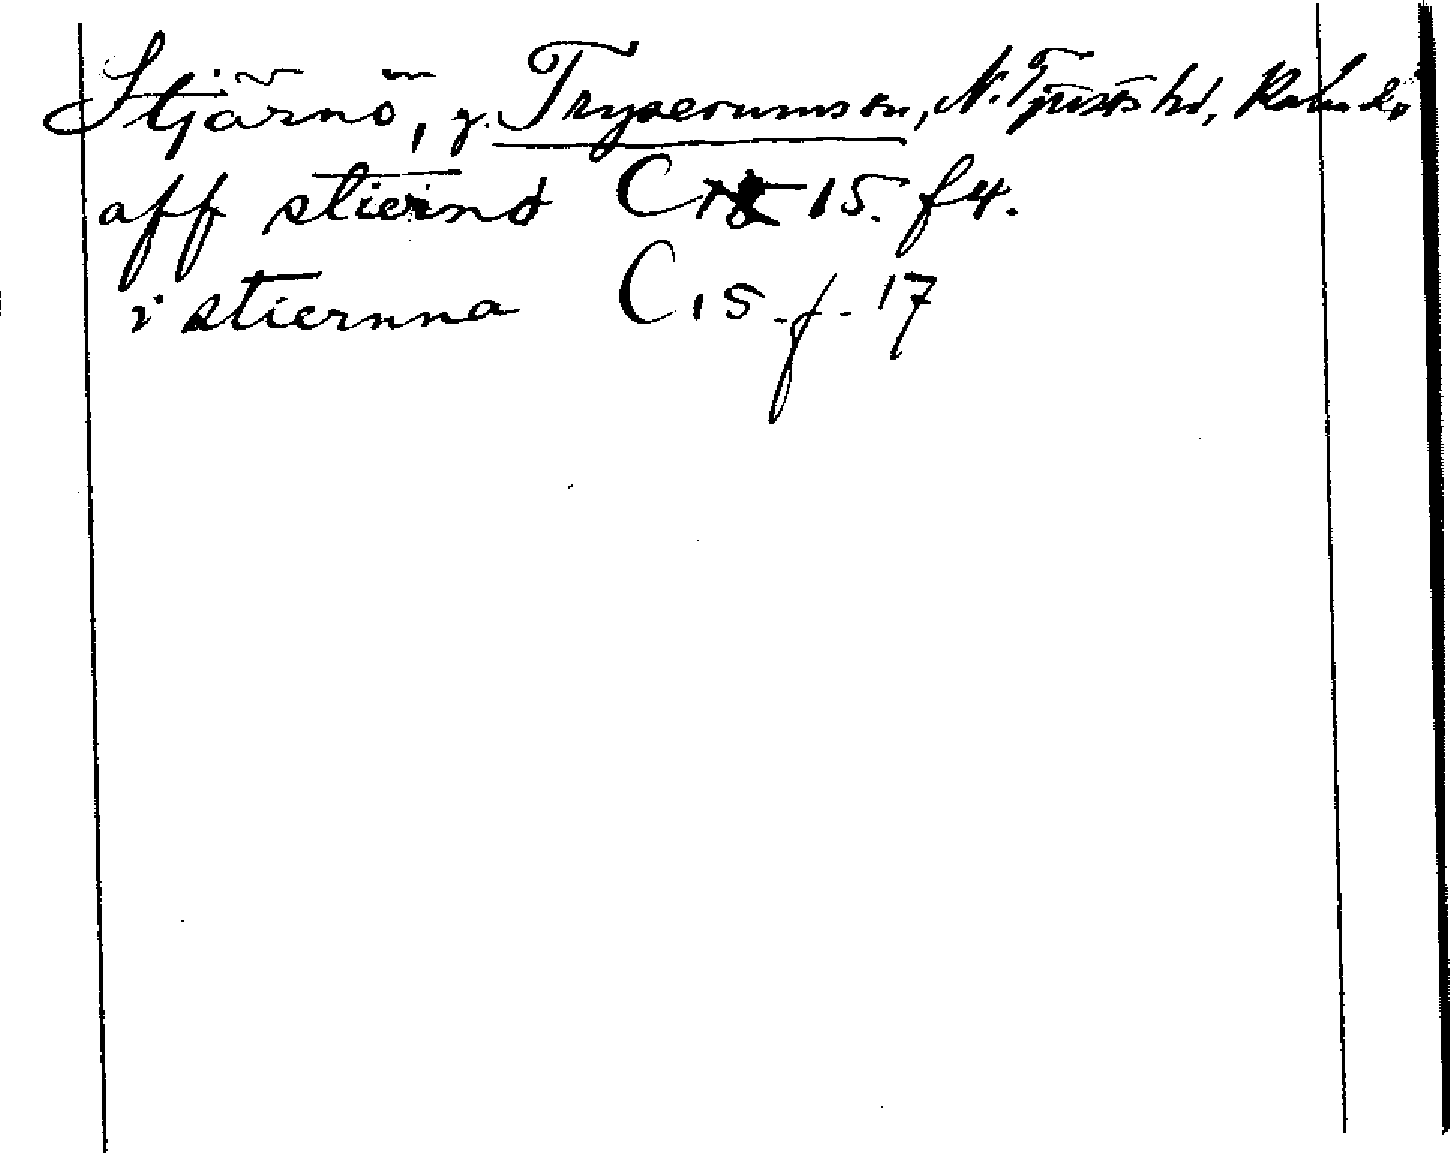 Stjärnö, g. Tryserums sn, N. Tjusts hd, Kalm. l.
aff stiernø C 15. f 4.
i stiernna C 15. f. 17